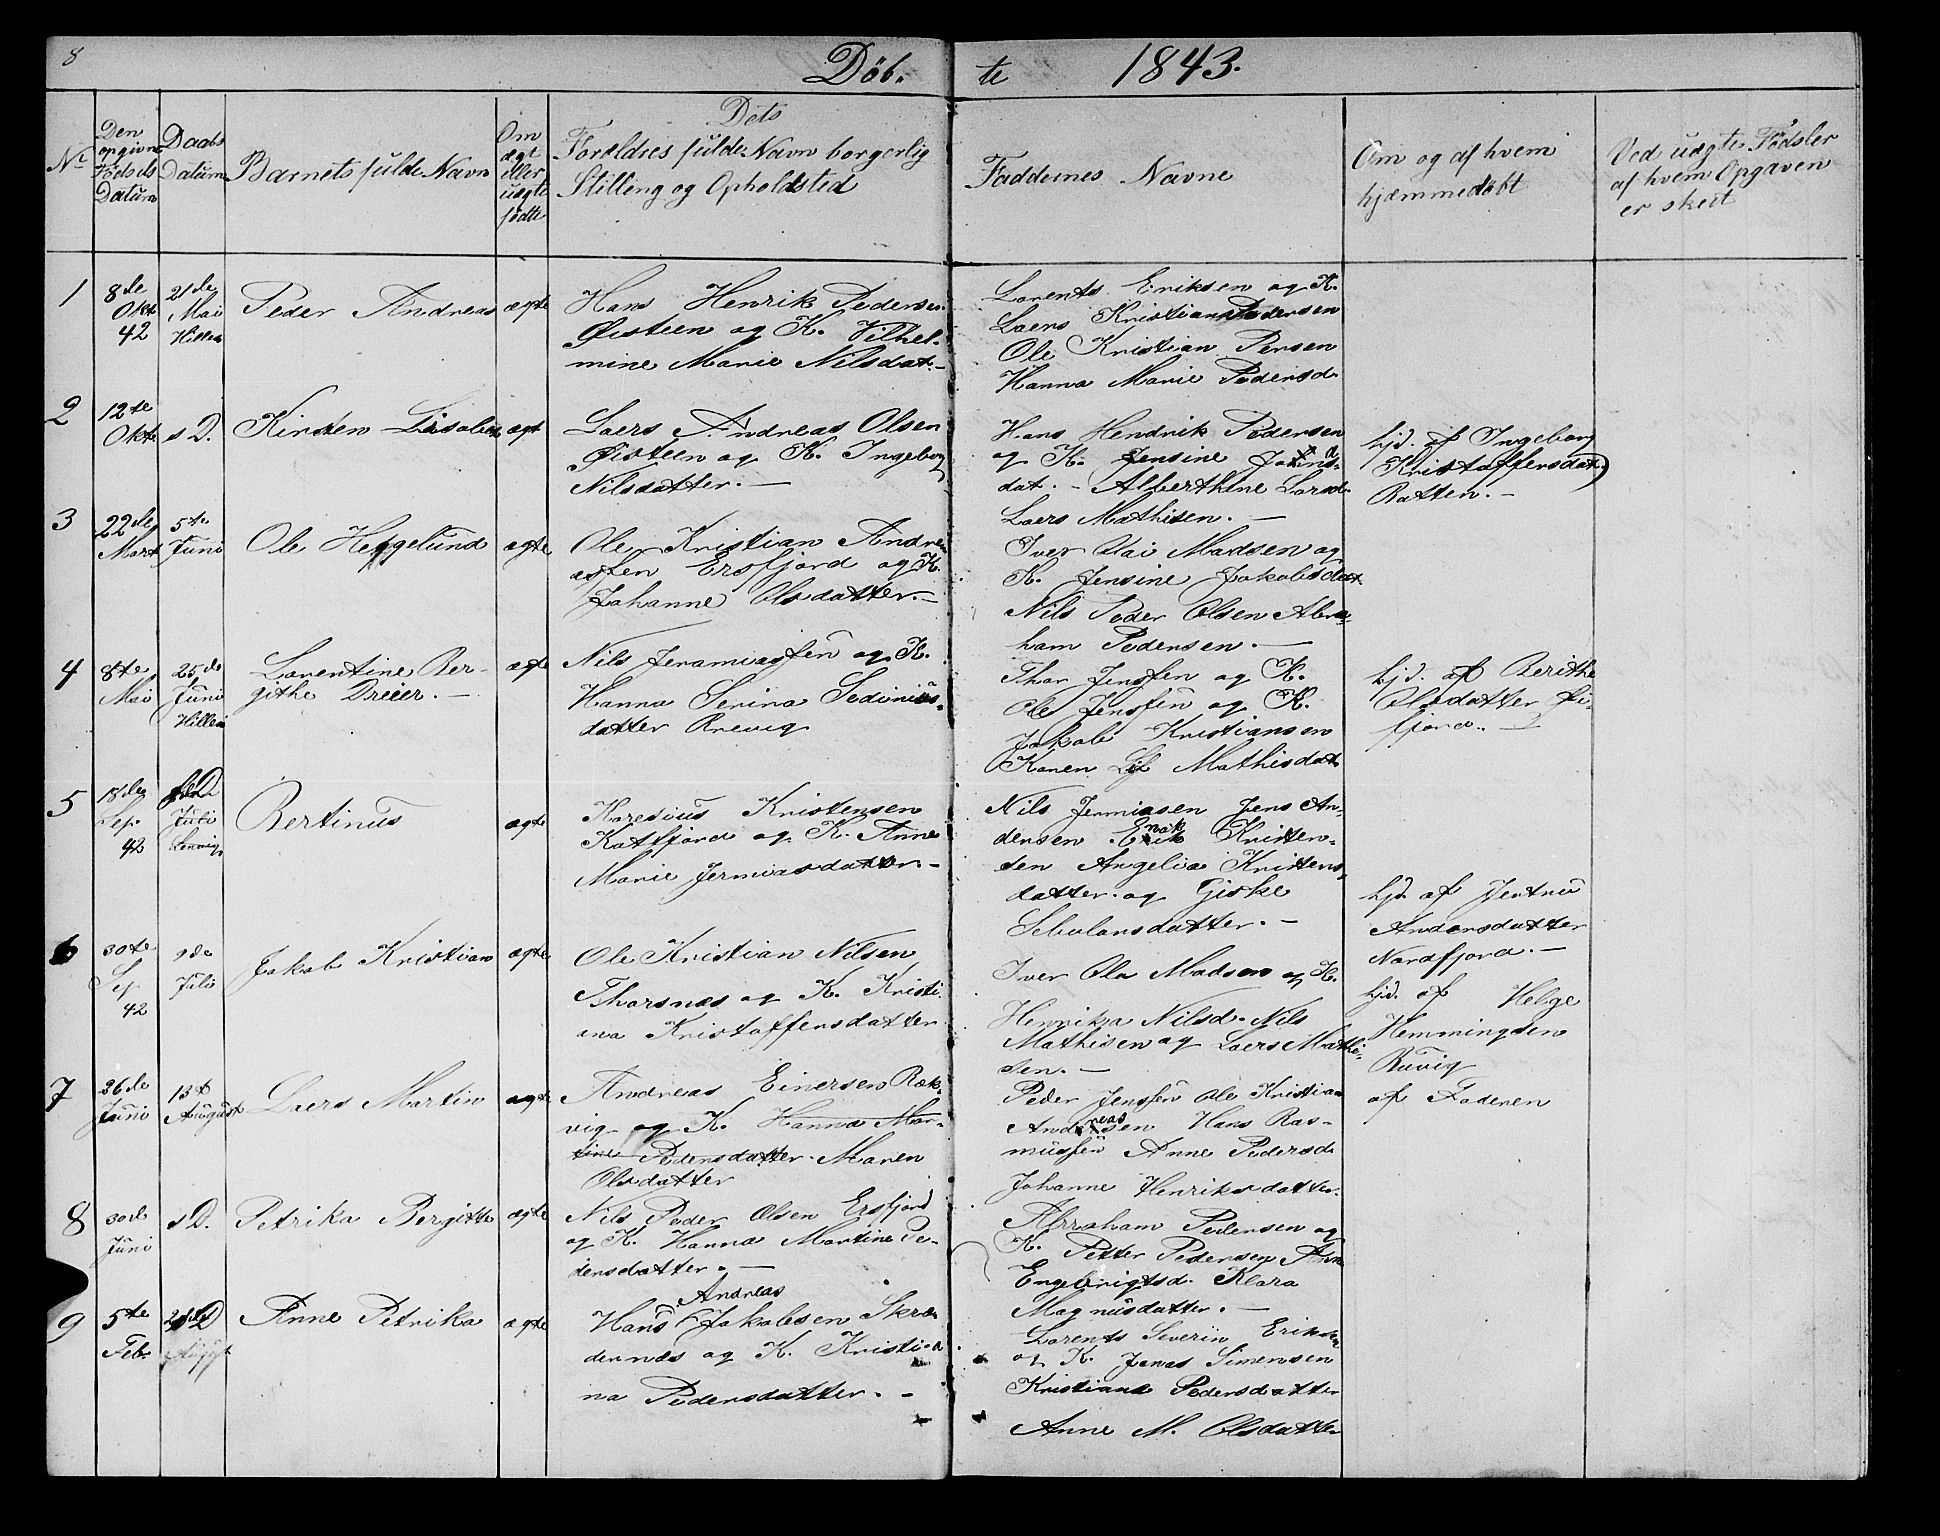 8
Døb.
te 1843.
No
Den opgivne Fødsels Datum
Daabs Datum
Barnets fulde Navn
Om ægt eller uægte fødte
Dets
Forældres fulde Navn borgerlig
Stilling og Opholdsted
Faddernes Navne
Om og af hvem
hjæmmedøbt
Ved uægte Fødsler
af hvem Opgaven
er skeet
1
8de
Okt.
42
21de
Mai
Hillesø
Peder Andreas
ægte
Hans Henrik Pedersen
Øisteen og K. Vilhel-
mine Marie Nilsdat.-
Lorents Eriksen og K.
Laers Kristian Pedersen
Ole Kristian Persen
Hanna Marie Pedersd.
2
12te
Okt.
s D.
Kirsten Lisabet
ægt
Laers Andreas Olsen
Øisteen og K. Ingeborg
Nilsdatter.-
Hans Hendrik Pedersen
og K. Jensine
dat. - Alberthine Larsd.
Laers Mathisen.-
hjd. af Ingeborg
Kristoffersdat.
3
22de
Mart
5te
Juni
Ole Heggelund
ægte
Ole Kristian Andre-
assen Ersfjord og K.
Johanne Olsdatter.-
Iver Olai Madsen og
K. Jensine Jakobsdat.
Nils Peder Olsen Abra-
ham Pedersen.-
4
8te
Mai
25de
Juni
Hillesø
Lorentine Ber-
githe Dreier.-
ægte
Nils Jeramiassen og K.
Hanna Serina Sedonius-
datter Brevig
Thor Jenssen og K.
Ole Jenssen og K.
Jakob Kristiansen
Karen Mathisdat.
hjd. af Berithe
Olsdatter
fjord.-
5
18de
Sep.
42
Juli
Lenvig
Bertinus
ægte
Horesius Kristensen
Katfjord og K. Anne
Marie Jermiasdatter-
Nils Jermiasen Jens An-
dersen Enok Kristen-
sen Angelia Kristens-
datter og Giske
Sebulonsdatter.-
hjd. af
Andersdatter
Nordfjord.-
6
30te
Sep
42
9de
Juli
Jakob Kristian
ægte
Ole Kristian Nilsen
Thorsnæs og K. Kristi-
ana Kristoffersdatter
Iver Ola Madsen og K.
Henrika Nilsd. Nils
Mathisen og Laers Mathi-
sen.-
hjd. af Helge
Hemmingsen
Buvig
7
26de
Juni
13d
August
Laers Martin
ægte
Andreas Einersen Bæk-
vig og K. Hanna Mar-
tine Pedersdatter. Maren
Olsdatter
Peder Jenssen Ole Kristian
Andreasen Hans Ras-
mussen Anne Pedersd
Johanne Henriksdatter.
af Faderen
8
30de
Juni
s D.
Petrika Bergitte
ægte
Nils Peder Olsen Ersfjord
og K. Hanna Martine Pe-
dersdatter.-
Abraham Pedersen og
K. Petter Pedersen Ane
Engebrigtsd. Klara
Magnusdatter.-
9
5te
Feb.
August
Anne Petrika
ægte
Andreas
Hans Jakobsen Skræ-
dernæs og K. Kristi-
na Pedersdatter.-
Lorents Severin Eriksen
og K. Jonas Simensen
Kristiane Pedersdatter
Anne M. Olsdatter